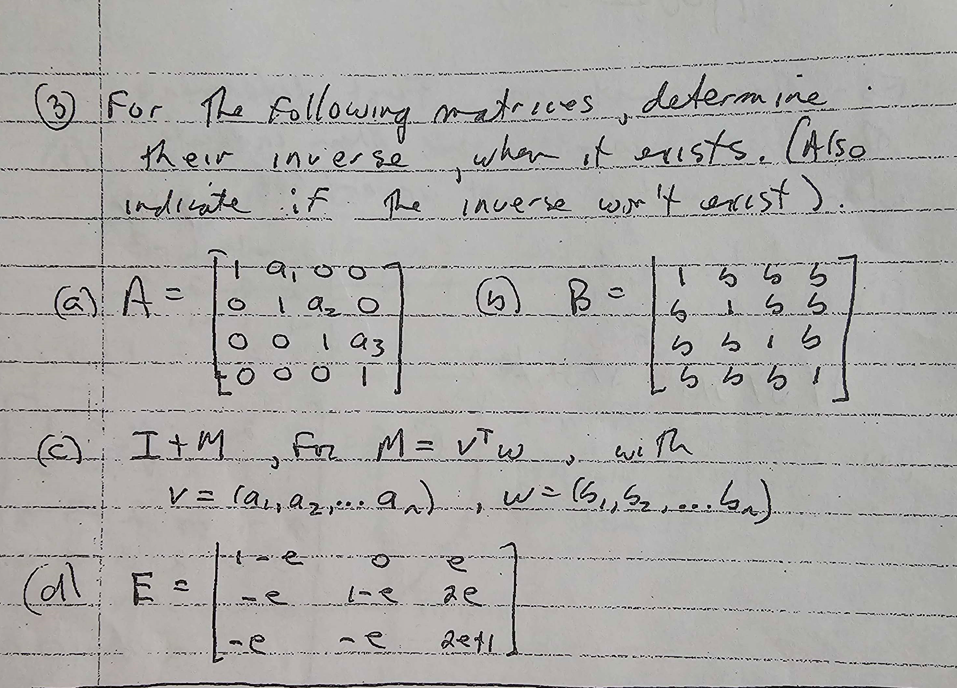 (3) For the following matrices, determine
their inverse, when it exists. (Also
indicate if the inverse won't exist).
(a) A = [1 a₁ 0 0 (b) B = [1 b b b
0 1 a₂ 0 b 1 b b
0 0 1 a₃ b b 1 b
0 0 0 1] b b b 1]
(c) I+M, for M = vᵀw, with
v = (a₁, a₂, ... aₙ), w = (b₁, b₂, ... bₙ)
(d) E = [1-e 0 e
-e 1-e 2e
-e -e 2e+1]